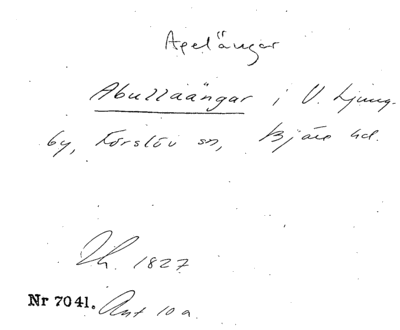 Apelängar
Abullaängar i V. Ljung-
by, Förslöv sn, Bjäre hd.
Lh. 1827
Nr 7041. Ant 10 a.